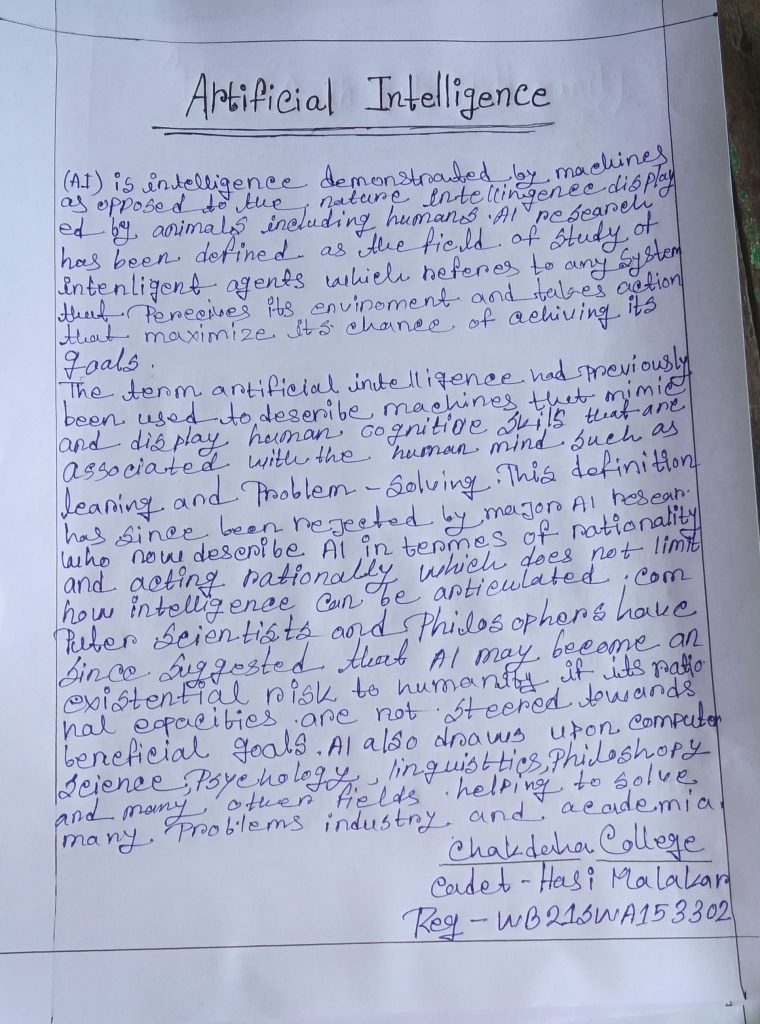 Artificial Intelligence
(AI) is intelligence demonstrated by machines
as opposed to the nature intellingence display
ed by animals including humans. AI research
has been defined as the field of study of
intenligent agents which referes to any system
that Perceives its enviroment and takes action
that maximize its chance of achiving its
goals.
The term artificial intelligence had previously
been used to describe machines that mimic
and display human cognitive skils that are
associated with the human mind such as
leaning and Problem - solving. This definition
has since been rejected by major AI resear
who now describe AI in termes of rationality
and acting rationally which does not limit
how intelligence can be articulated. com
Puter scientists and Philosophers have
since suggested that AI may become an
existential risk to humanity if its ratio
nal capacities are not steered towards
beneficial goals. AI also draws upon computer
science, Psychology, linguisttics, Philoshopy
and many other fields. helping to solve
many Problems industry and academia.
Chakdaha College
Cadet - Hasi Malakar
Reg - WB21SWA153302